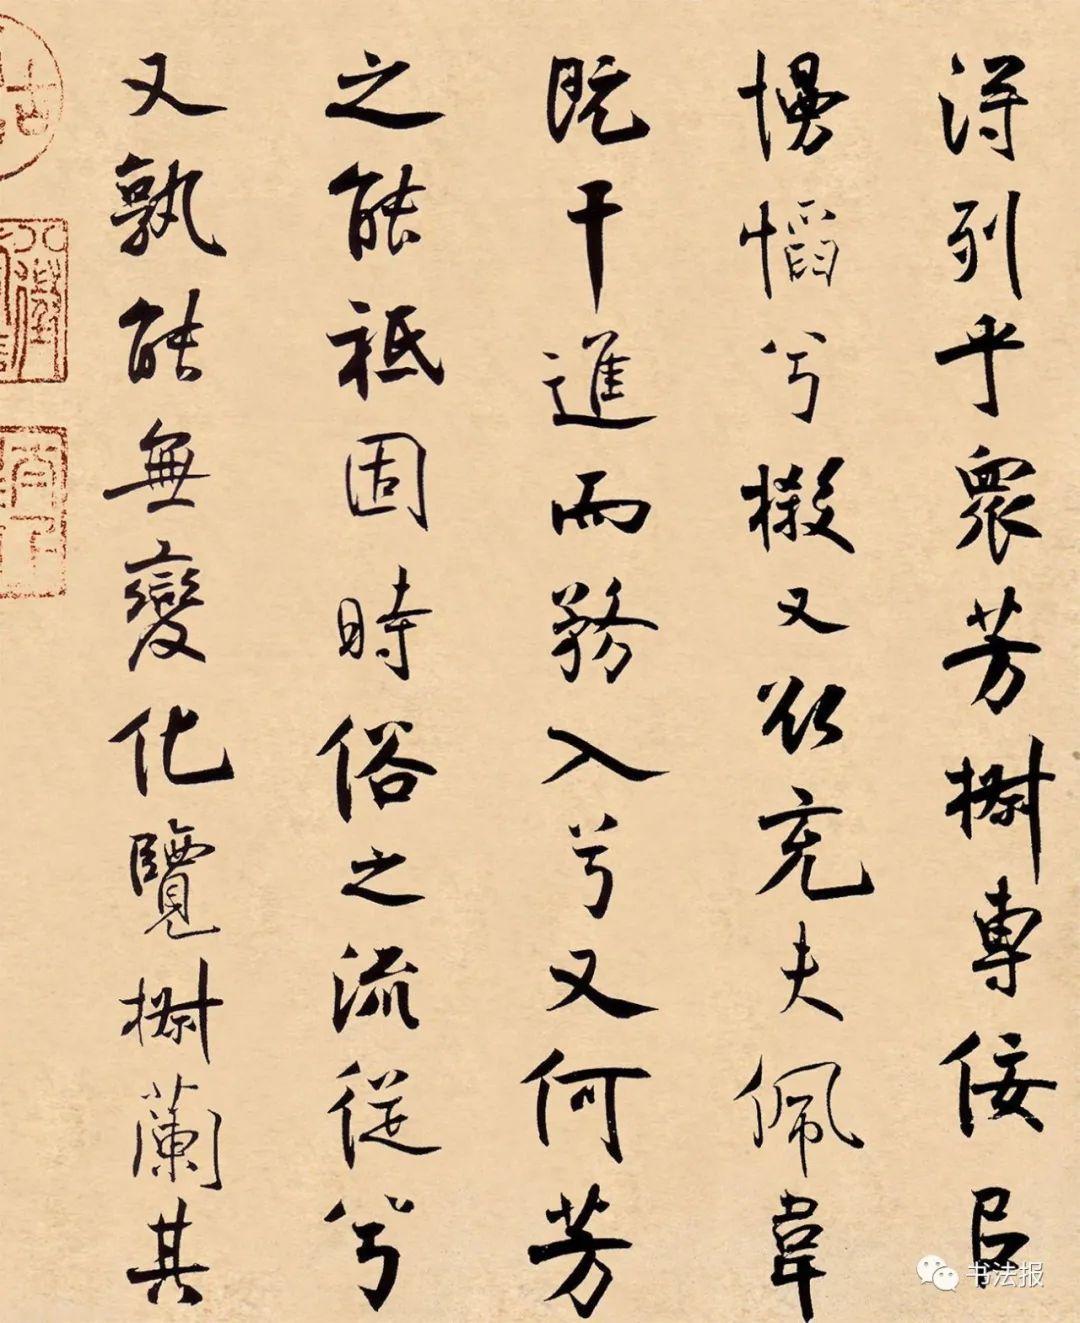 得列乎眾芳樹專佞以
慢慆兮樧又欲充夫佩幃
既干進而務入兮又何芳
之能祗固時俗之流從兮
又孰能無變化覽樹蘭其
书法报